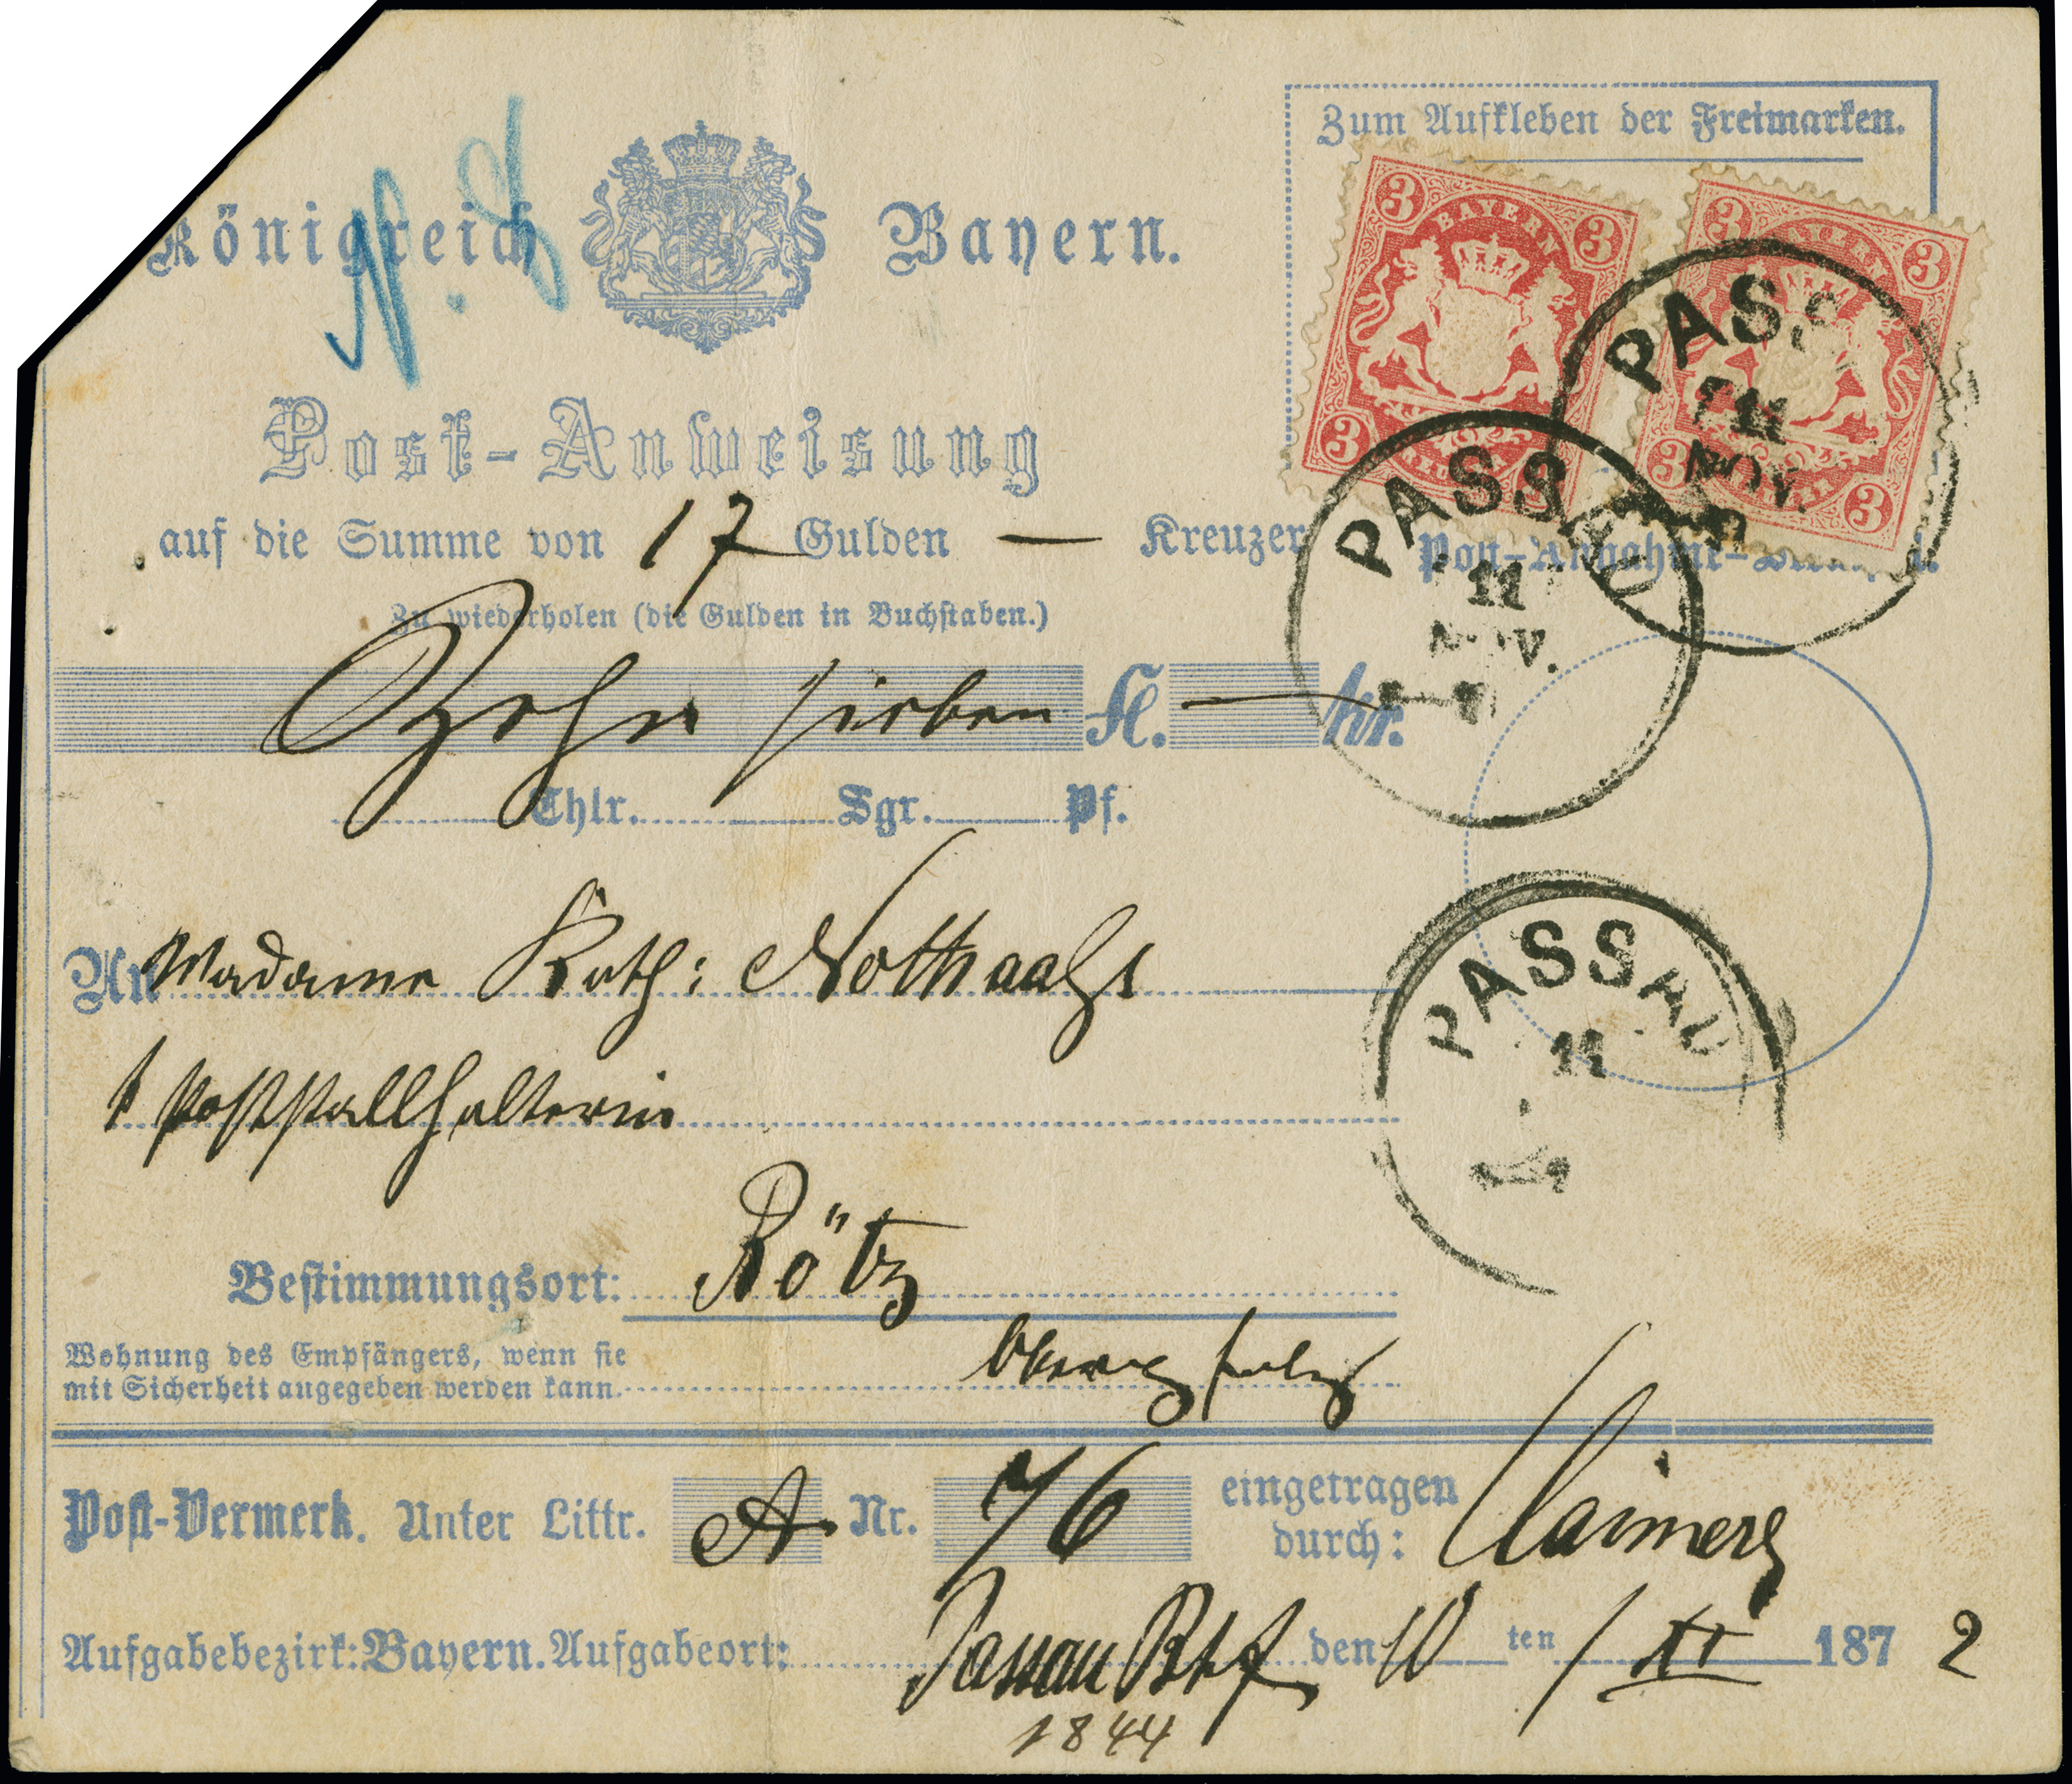 Zum Aufkleben der Freimarken.
N. 8
Königreich Bayern.
3 BAYERN 3
3 3
3 BAYERN 3
3 3
PASSAU
11
NOV.
PASSAU
11
NOV.
Post-Anweisung
auf die Summe von 17 Gulden — Kreuzer
Post-Annahme-
Zu wiederholen (die Gulden in Buchstaben.)
Zehn sieben Fl. — kr.
Thlr. Sgr. Pf.
PASSAU
11
An Madame Kath: Nothaaß
Poststallhalterin
Bestimmungsort: Rötz
Wohnung des Empfängers, wenn sie
mit Sicherheit angegeben werden kann. Oberpfalz
Post-Vermerk. Unter Littr. A. Nr. 76 eingetragen
durch:
Aufgabebezirk: Bayern. Aufgabeort: Passau Bhf den 10 ten / XI 187 2
1844